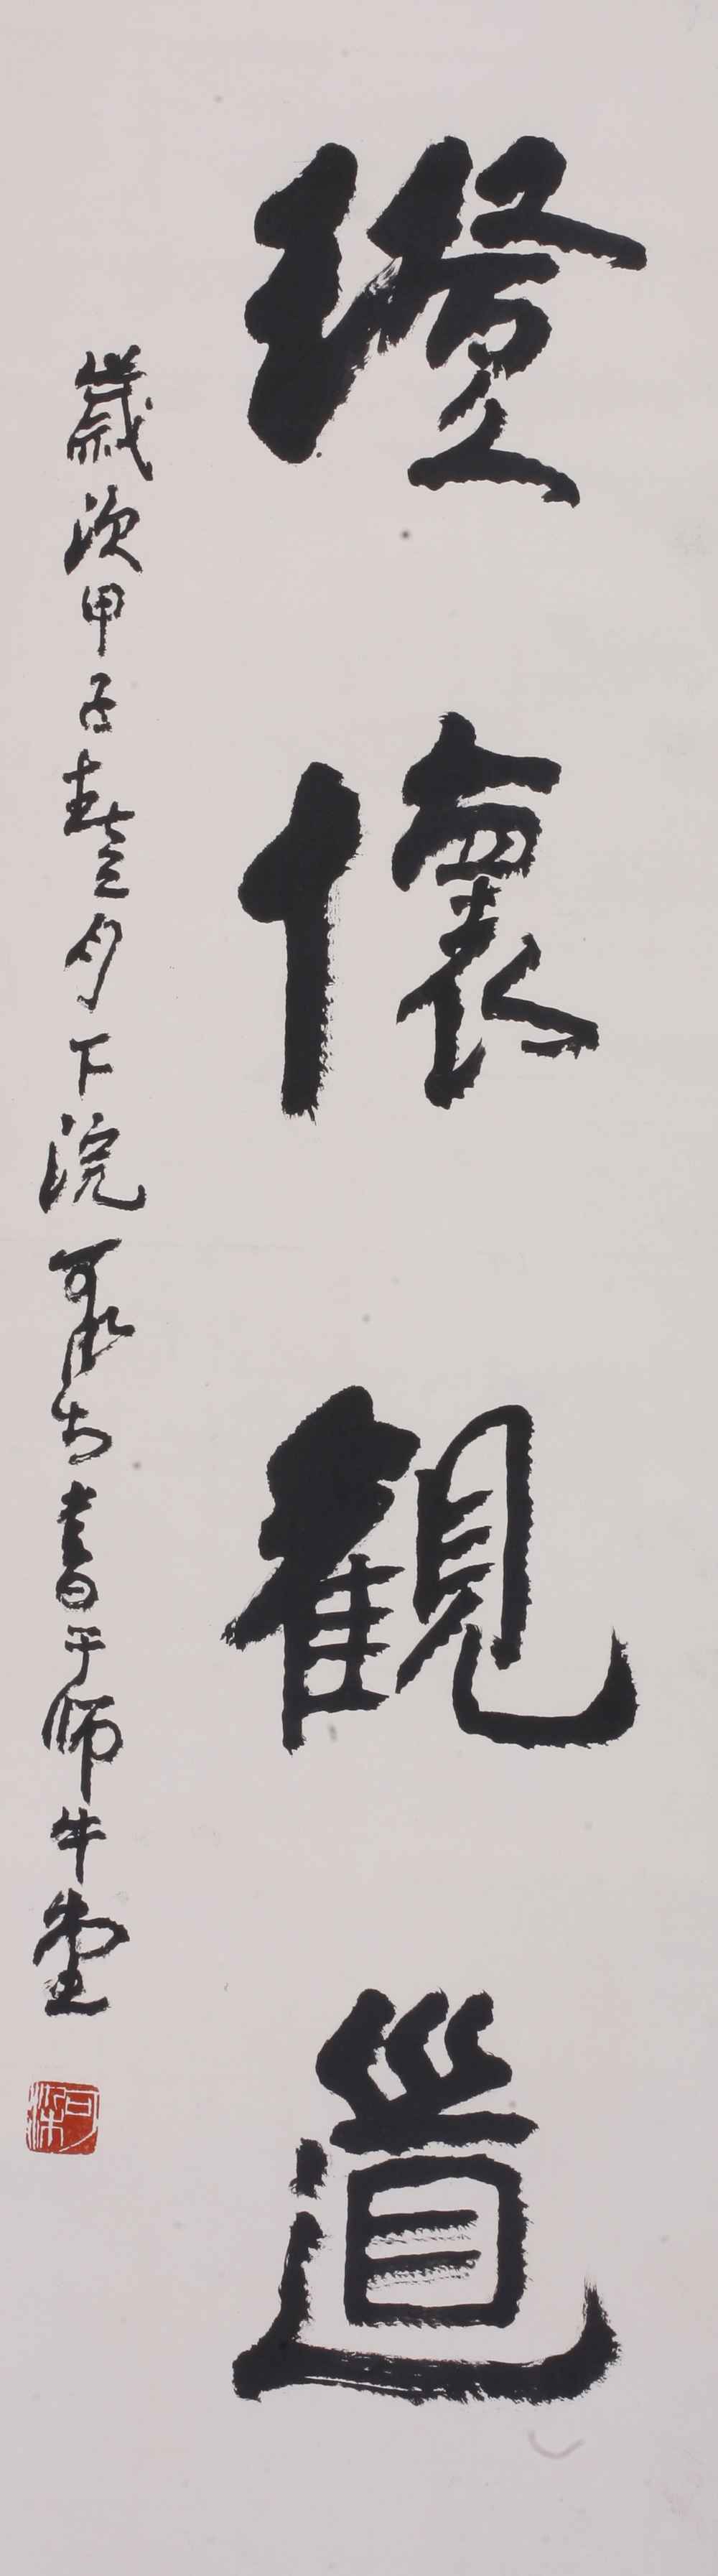 澄懷觀道
歲次甲子春三月下浣可染書于師牛堂
可染